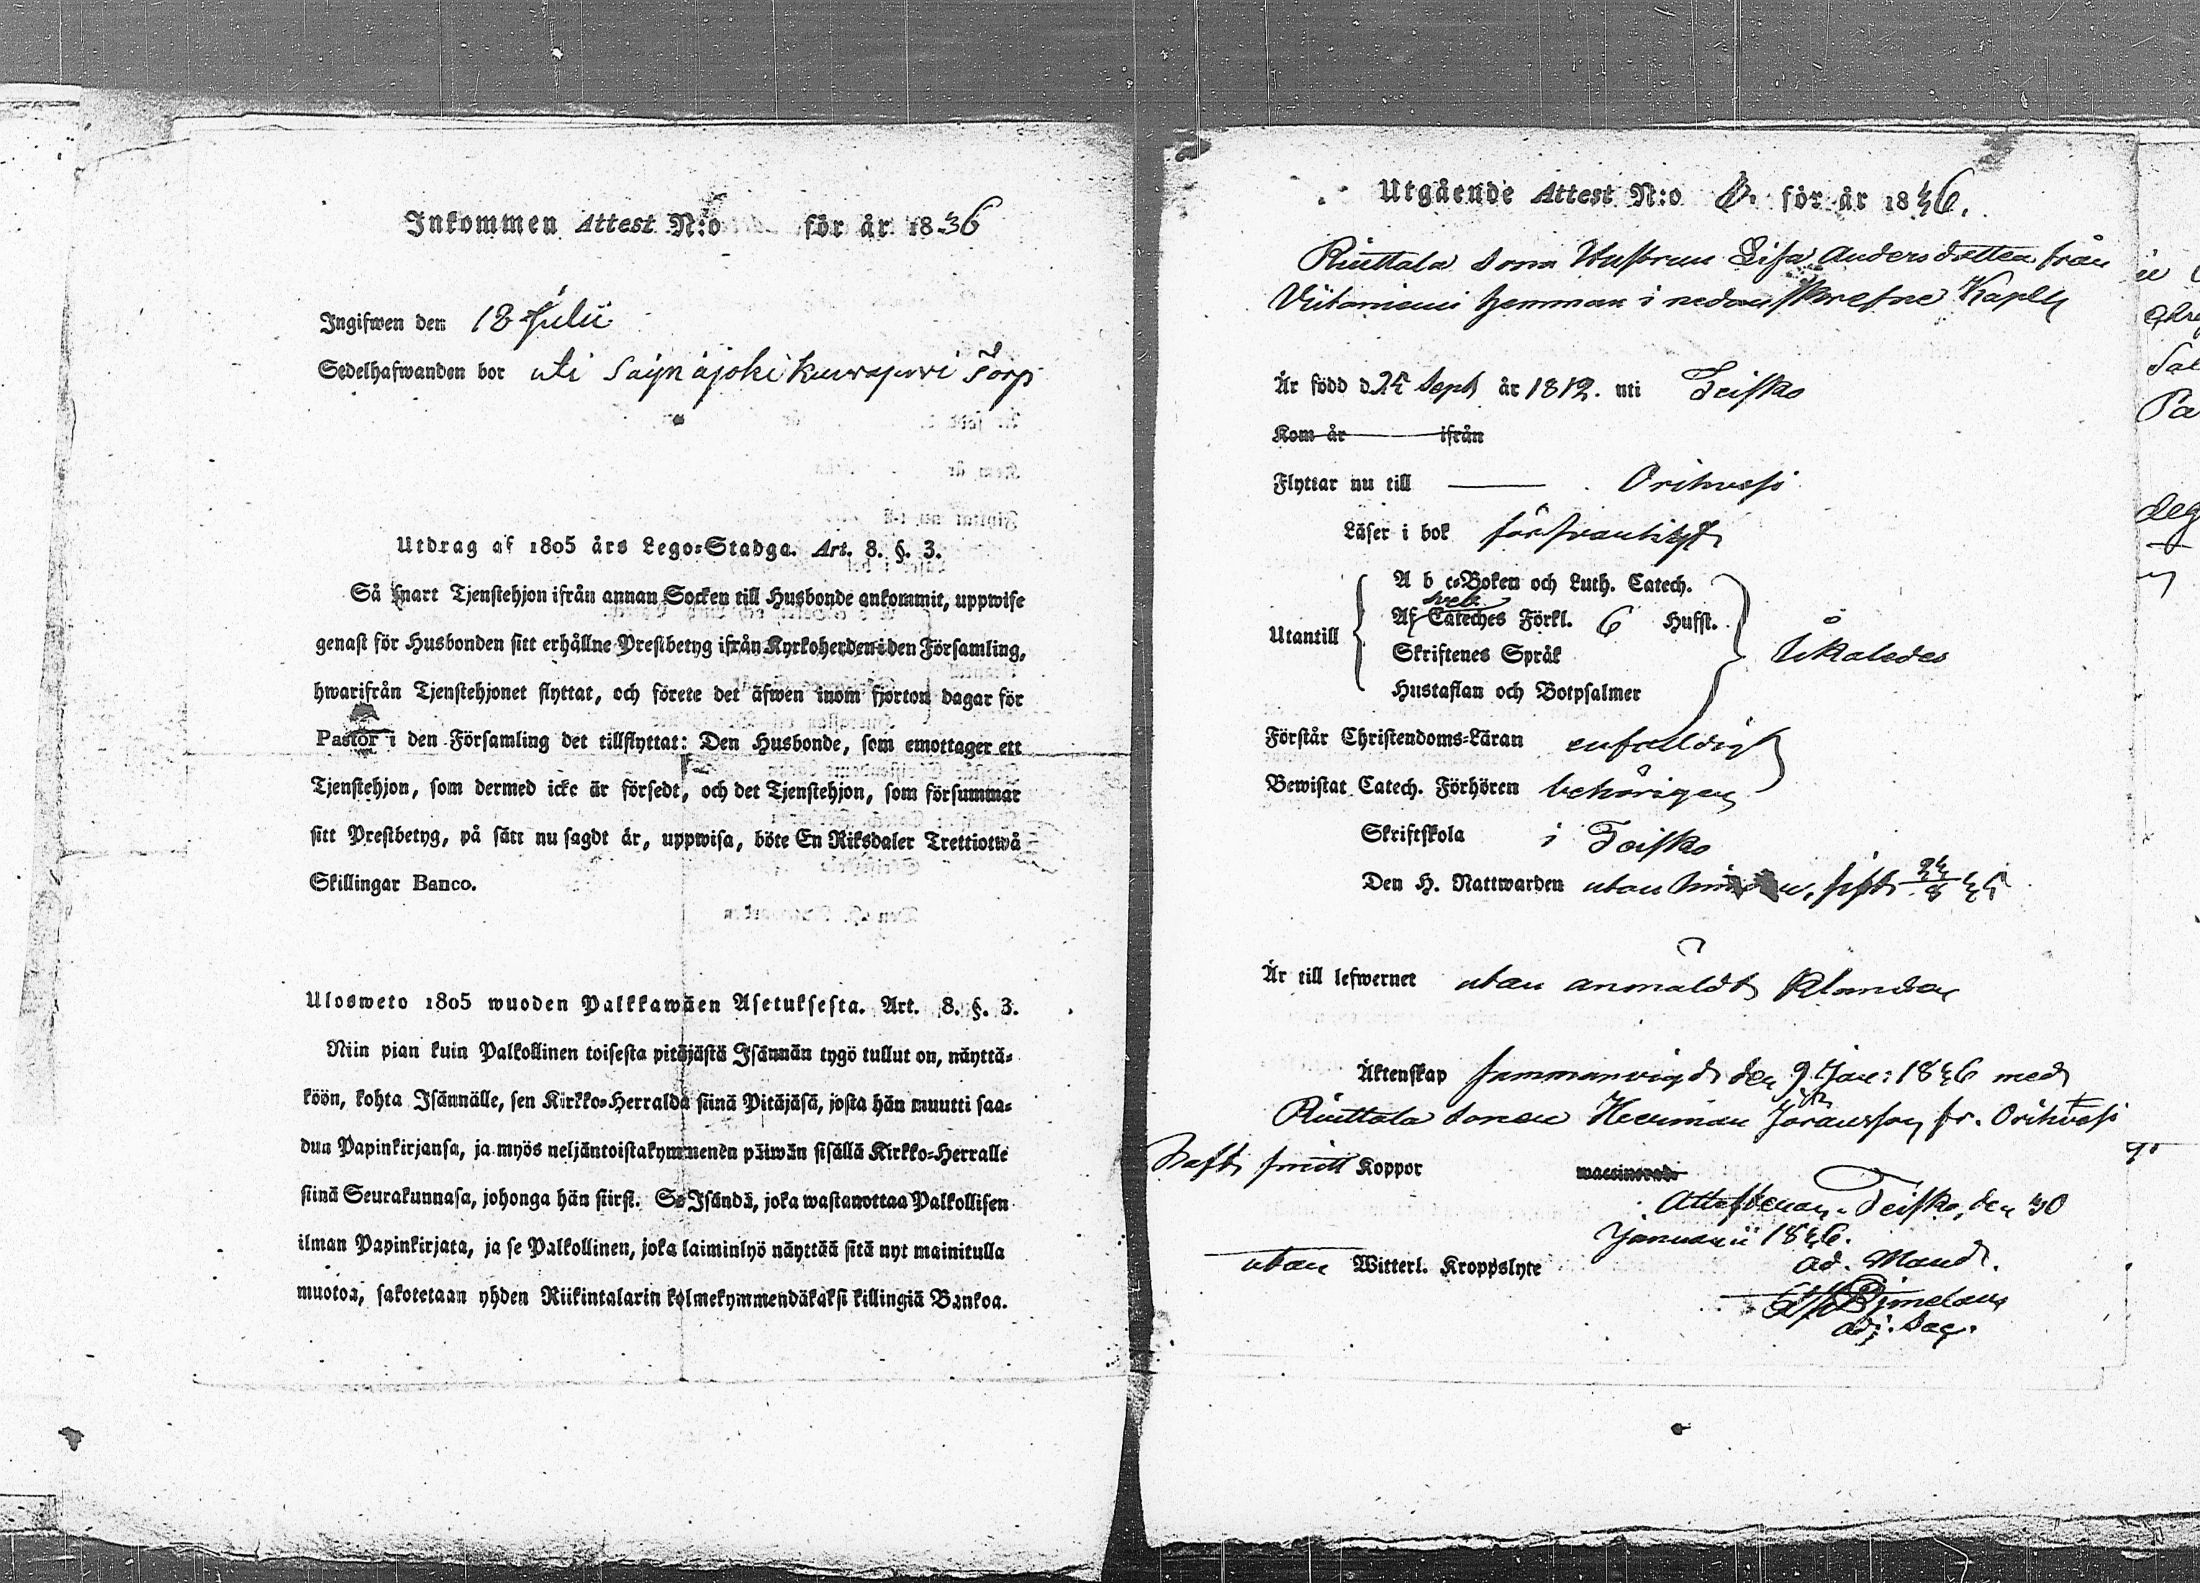 Inkommen Attest N:o för år 1836
Ingifwen den 18 Julii
Sedelhafwanden bor uti Säynäjoki Torp
Utdrag af 1805 års Lego-Stadga. Art. 8. §. 3.
Så snart Tjenstehjon ifrån annan Socken till Husbonde ankommit, uppwise
genast för Husbonden sitt erhållne Prestbetyg ifrån Kyrkoherden i den Församling,
hwarifrån Tjenstehjonet flyttat, och förete det äfwen inom fjorton dagar för
Pastor i den Församling det tillflyttat: Den Husbonde, som emottager ett
Tjenstehjon, som dermed icke är försedt, och det Tjenstehjon, som försummar
sitt Prestbetyg, på sätt nu sagdt är, uppwisa, böte En Riksdaler Trettiotwå
Skillingar Banco.
Ulosweto 1805 wuoden Palkkawäen Asetuksesta. Art. 8. §. 3.
Niin pian kuin Palkollinen toisesta pitäjästä Isännän tygö tullut on, näyttä-
köön, kohta Isännälle, sen Kirkko-Herralda siinä Pitäjäsä, josta hän muutti saa-
dun Papinkirjansa, ja myös neljäntoistakymmenen päiwän sisällä Kirkko-Herralle
siinä Seurakunnasa, johonga hän siirst. Se Isändä, joka wastanottaa Palkollisen
ilman Papinkirjata, ja se Palkollinen, joka laiminlyö näyttää sitä nyt mainitulla
muotoa, sakotetaan yhden Riikintalarin kolmekymmendäkaksi killingiä Bankoa.
Utgående Attest N:o för år 1846.
Riuttala sona Hustrun Lisa Andersdotter från
Viitaniemi hemman i nedanskrefne Kapell
Är född d. 25 Sept år 1812. uti Teisko
Kom år ifrån
Flyttar nu till Orihvesi
Läser i bok försvarligt
Utantill
A b c-Boken och Luth. Catech.
Sveb.
Af Cateches Förkl. 6 Hufst.
Skriftenes Språk
Hustaflan och Botpsalmer
Åkalledes
Förstår Christendoms-Läran enfaldigt
Bewistat Catech. Förhören behörigen
Skriftskola i Teisko
Den H. Nattwarden utan hinder, sist 24/8 45
Är till lefwernet utan anmäldt klander
Äktenskap sammanvigd den 9 Jan: 1846 med
Riuttala sonen Herman Jöransson fr. Orihvesi
Haft smitt Koppor waccinerad
Attesteras. Teisko, den 30
Januarii 1846.
utan Witterl. Kroppslyte
ad. Mand.
adj. Sac.